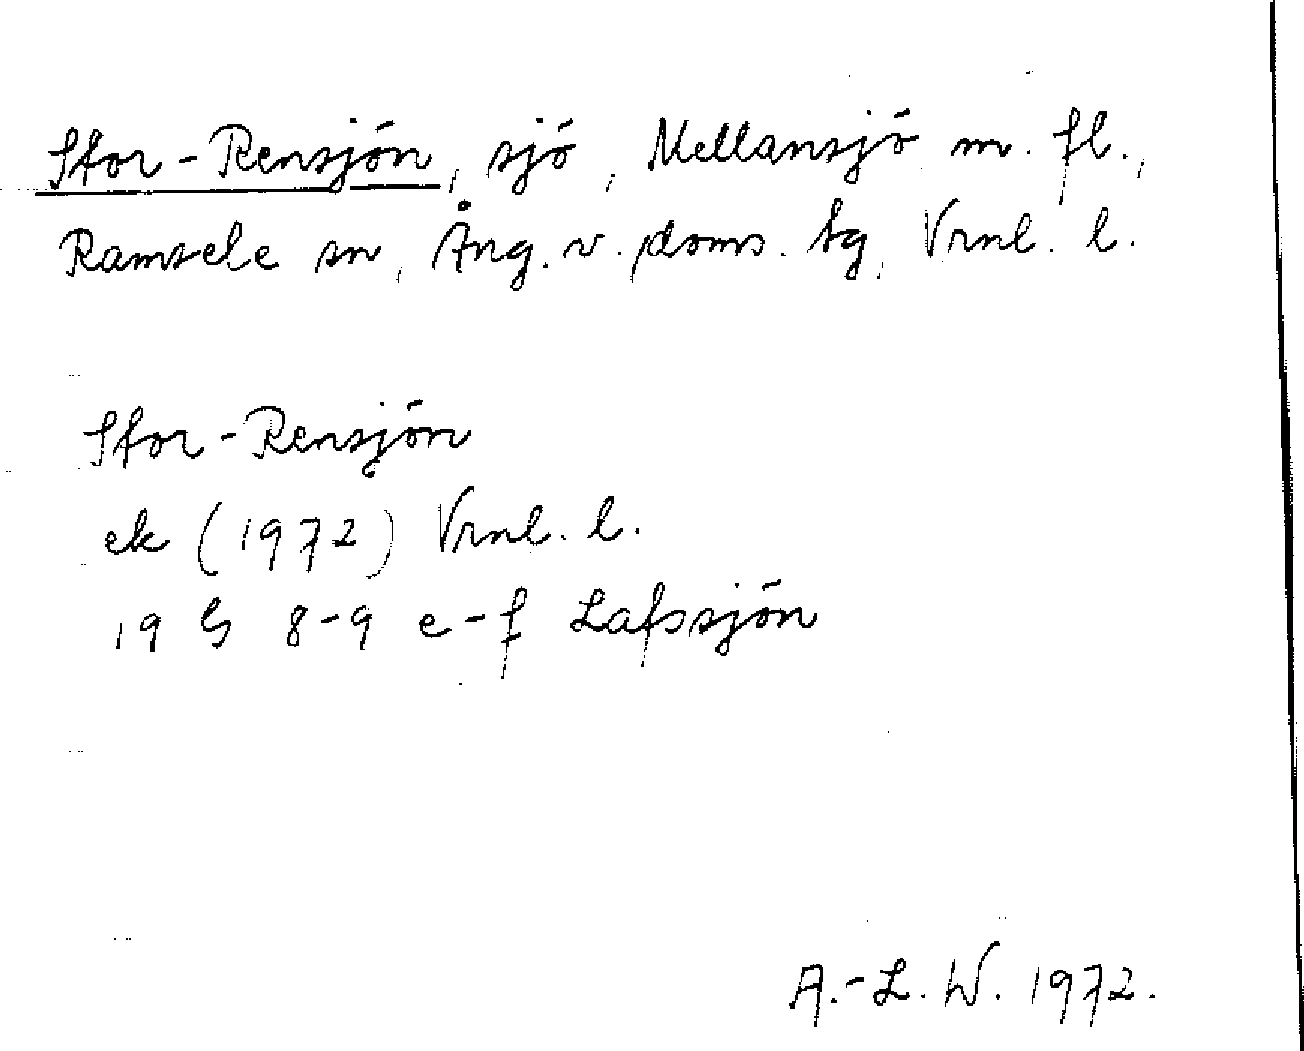 Stor-Rensjön, sjö, Mellansjö m. fl.,
Ramsele sn, Ång. v. doms. tg, Vrnl. l.
Stor-Rensjön
ek (1972) Vrnl. l.
19 G 8-9 e-f Lafssjön
A.-L. W. 1972.